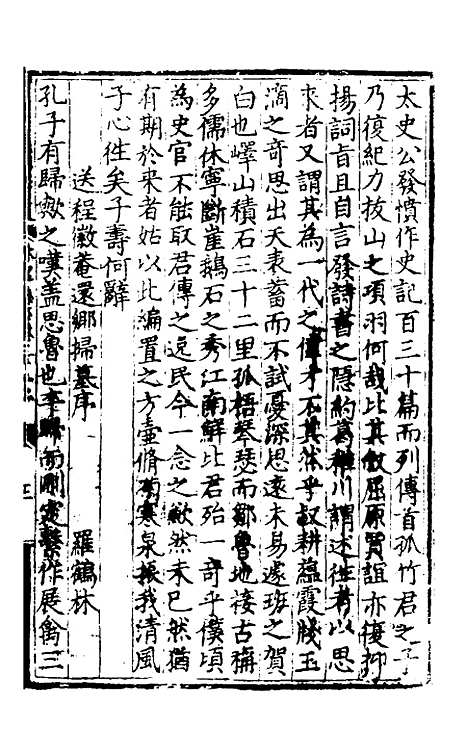 太史公發憤作史記百三十篇而列傳首孤竹君之子
乃復紀力拔山之項羽何哉比其敘屈原賈誼亦復抑
揚詞旨且自言發詩書之隱約葛稚川謂述往者以思
來者又謂其為一代之偉才不其然乎叔耕蘊霞牋玉
滴之奇思出天表蓄而不試憂深思遠未易遽班之賀
白也嶧山積石三十二里孤梧琴瑟而鄒魯地褄古稱
多儒休寧斷崖鵝石之秀江南鮮比君殆一奇乎僕頃
為史官不能取君傳之逸民今一念之歉然未已然猶
有期於來者姑以此編置之方壺脩菊寒泉振我清風
于心徃矣子壽何辭
送程徽菴還鄉掃墓序 羅鶴林
孔子有歸歟之嘆盖思魯也 而刪定繫作展禽三